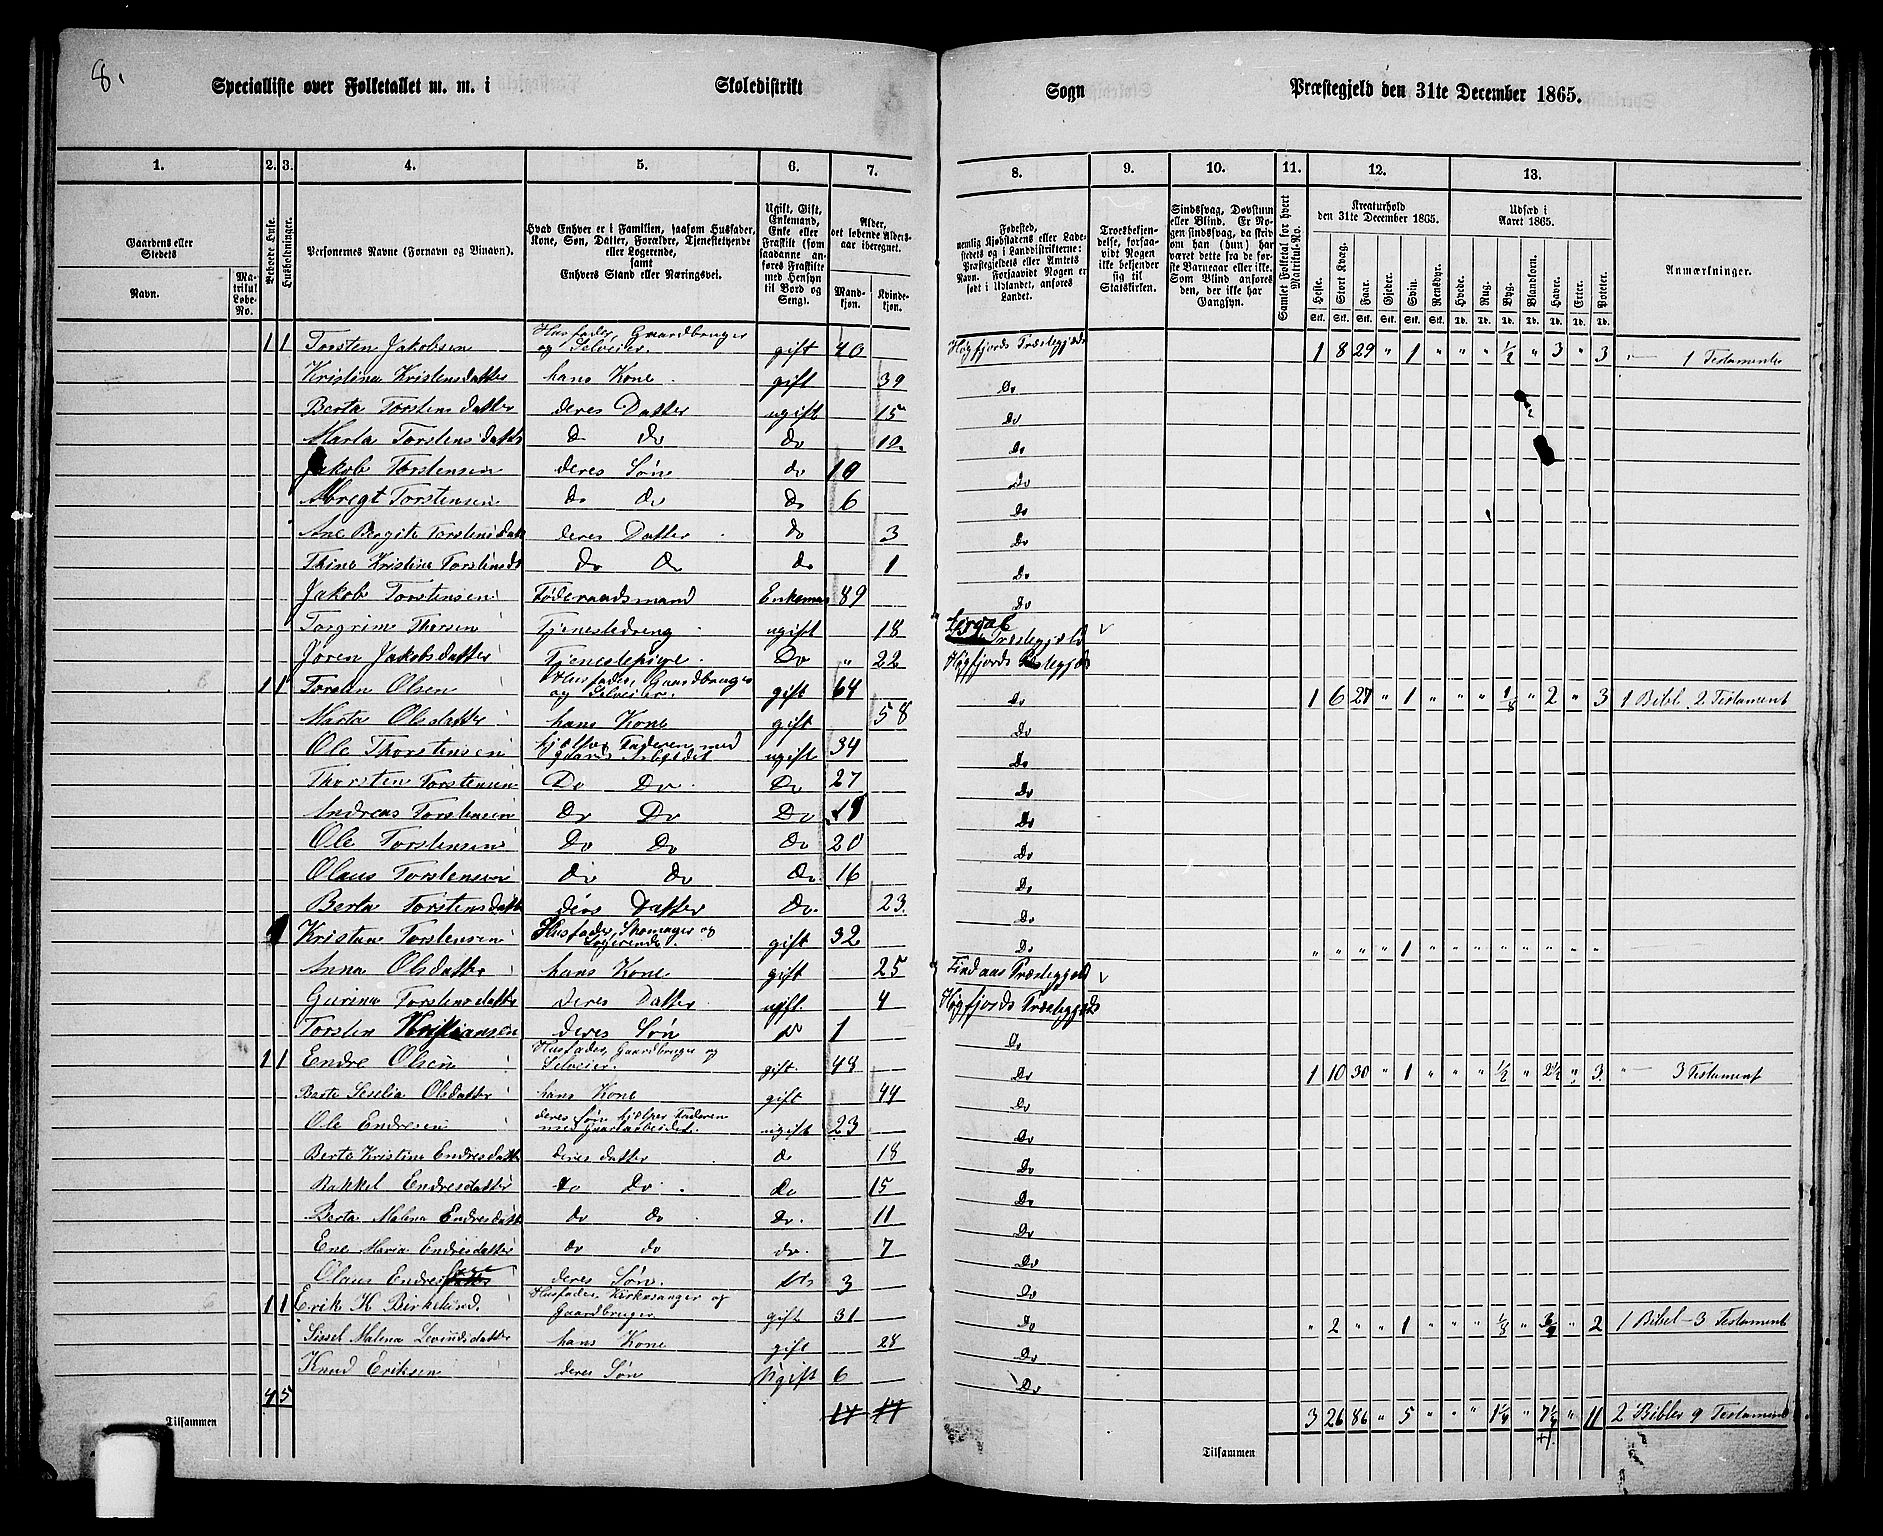 8.
Specialliste over Folketallet m. m. i Skoledistrikt Sogn Præstegjeld den 31te December 1865.
1. 2. 3. 4. 5. 6. 7. 8. 9. 10. 11. 12. 13.
Gaardens eller Stedets
Navn.
Matrikul Løbe-No.
Beboede Huse.
Husholdninger.
Personernes Navne (Fornavn og Tilnavn).
Hvad Enhver er i Familien, saasom Husfader, Kone, Søn, Datter, Forældre, Tjenestetyende eller Logerende, samt Enhvers Stand eller Næringsvei.
Ugift, Gift, Enkemand, Enke eller Fraskilt (som saadanne anføres Fraskilte med Hensyn til Bord og Seng).
Alder, det løbende Aldersaar iberegnet.
Mandkjøn. Kvindekjøn.
Fødested, nemlig Kjøbstadens eller Ladestedets og i Landdistrikterne: Præstegjeldets eller Amtets Navn. Forsaavidt Nogen er født i Udlandet, anføres Landet.
Troesbekjendelse, forsaavidt Nogen ikke bekjender sig til Statskirken.
Sindssvag, Døvstum eller Blind. Er Nogen sindssvag, da skriv om han (hun) har været dette fra de første Barneaar eller ikke. Som Blind anføres den, der ikke har Gangsyn.
Samlet Folketal for hvert Matrikul-No.
Kreaturhold den 31te December 1865.
Heste. Stort Kvæg. Faar. Gjeder. Svin. Rensdyr.
Udsæd i Aaret 1865.
Hvede. Rug. Byg. Blandkorn. Havre. Erter. Poteter.
Anmærkninger.
1 1 Torsten Jakobsen Husfader, Gaardbruger og Selveier. gift 40 Høgfjords Præstegjeld 1 8 29 " 1 " " " ½ " 3 " 3 "— 1 Testamente
Kristine Kristensdatter hans Kone gift 39 Do
Berta Torstensdatter deres Datter ugift 15 Do
Marta Torstensdatter Do Do do 10 Do
Jakob Torstensen deres Søn do 10 Do
Torstensen Do Do Do 6 Do
Ane Torstensdatt deres Datter do 3 Do
Thine Kristine Torstensd Do Do Do 1 Do
Jakob Torstensen Føderaadsmand Enkeman 89 Do
Torgrim Thorsen Tjenestedreng ugift 18 Præstegjeld
Jøren Jakobsdatter Tjenestepige. Do " 22 Høgfjords Præstegjeld
1 1 Torsten Olsen Husfader, Gaardbruger og Selveier. gift 64 Do 1 6 27 " 1 " " " 1/8 " 2 " 3 1 Bibl 2 Testament
Marta Olsdatter hans Kone gift 58 Do
Ole Thorstensen hjelper Faderen med Gaards Arbeidet ugift 34 Do
Thorsten Torstensen Do Do Do 27 Do
Andreas Torstensen Do Do Do Do
Ole Torstensen Do Do Do 20 Do
Olaus Torstensen Do Do Do 16 Do
Berta Torstensdatte deres Datter Do. 23. Do
1 Kristian Torstensen Husfader, Skomager og Logerende. gift 32 Do " " " " 1 " " " " " " " "
Anna Olsdatter hans Kone gift 25 Præstegjeld
Gurine Torstensdatte deres Datter ugift. 4 Høgfjords Præstegjelds
Torsten Kristiansen deres Søn Do 1 Do
1 1 Endre Olsen Husfader, Gaardbruger og Selveier. gift. 48 Do 1 10 30 " 1 " " " ½ " 2½ " 3 "— 3 Testament
Berte Seselia Olsdatter hans Kone gift 44 Do
Ole Endresen deres Søn hjelper Faderen med Gaardarbeidet. ugift 23 Do
Berte Kristine Endresdatte deres datter do 18 Do
Rakkel Endresdatter do Do do 15 Do
Berta Malena Endresdatt do do do. 11 Do
Ene Maria Endresdatter do do do. 7 Do
Olaus Endresen deres Søn do 3 Do
1 1 Erik K Birkelund. Husfader, Kirkesanger og Gaardbruger. gift 31 Do " 2 " " 1 " " " 1/8 " " 2 1 Bibel — 3 Testament
Sissel Malena datter hans Kone gift 28 Do
Knud Eriksen deres Søn Ugift 6 Do
4 5
Tilsammen 17 17 Tilsammen 3 26 86 " 5 " " " 1¼ " 7½ " 11 2 Bibler 9 Testament